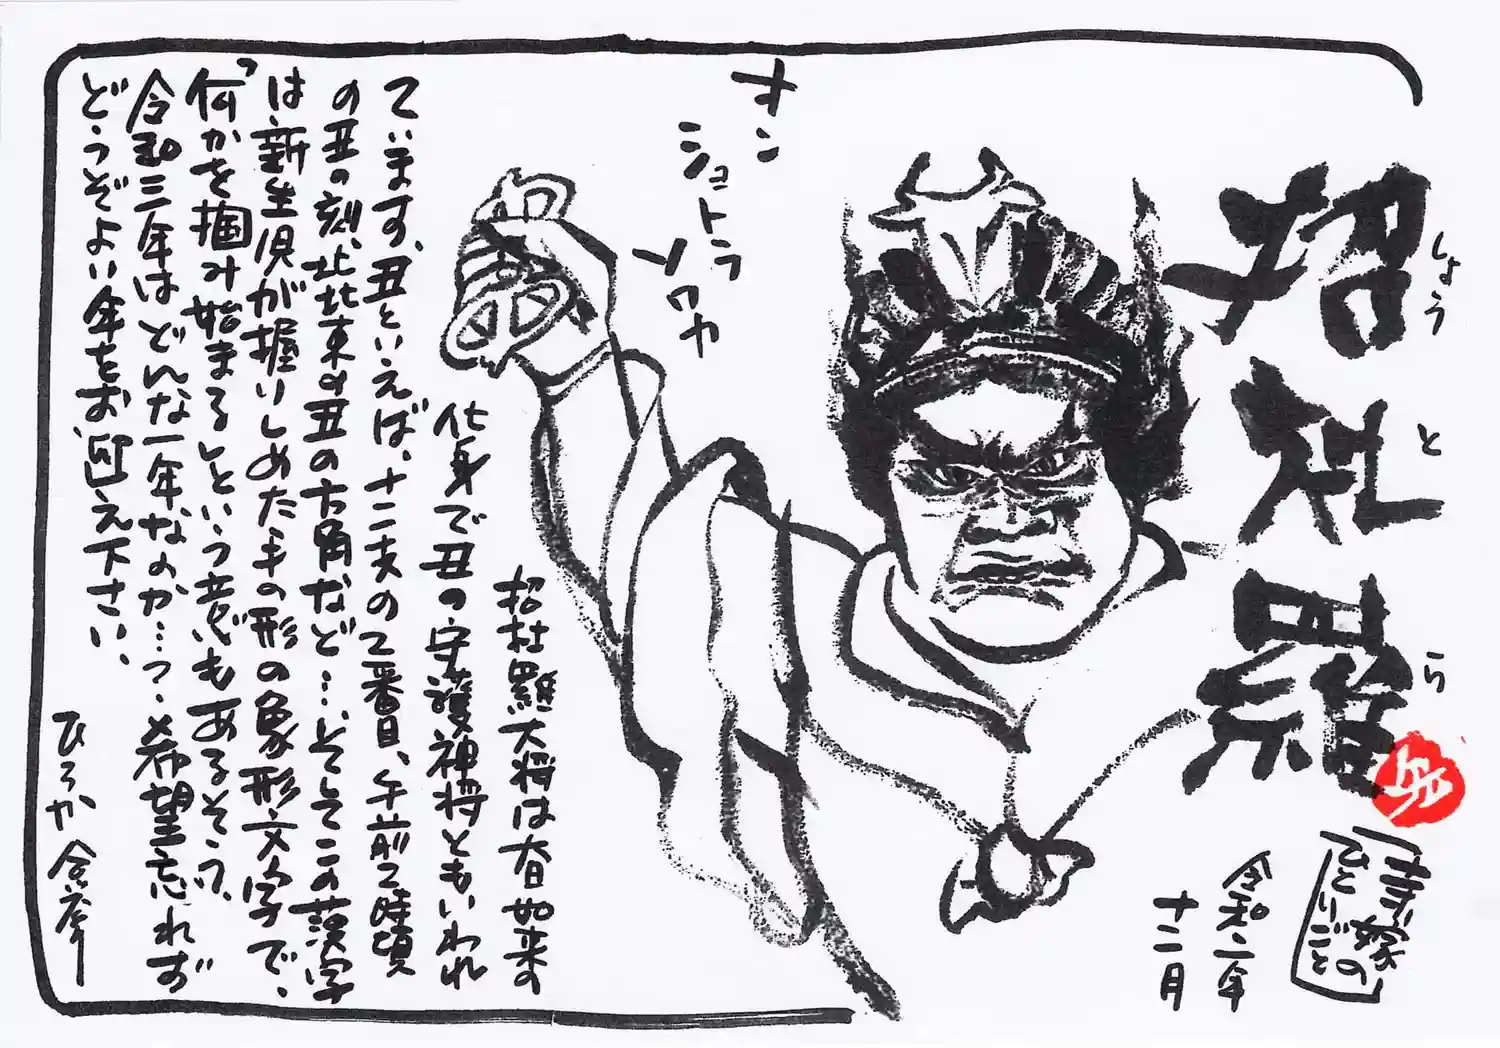 招杜羅
しょうとら
「寺嫁のひとりごと」
令和二年
十二月
オン
シュトラ
ソワカ
招杜羅大将は大日如来の
化身で丑の守護神将ともいわれ
ています、丑といえば、十二支の2番目、午前2時頃
の丑の刻、北北東の丑の方角など…、そしてこの漢字
は、新生児が握りしめた手の形の象形文字で、
「何かを掴み始まる」という意味もあるそう。
令和三年はどんな一年なのか…?希望忘れず
どうぞよい年をお迎え下さい、
ひろか 合掌